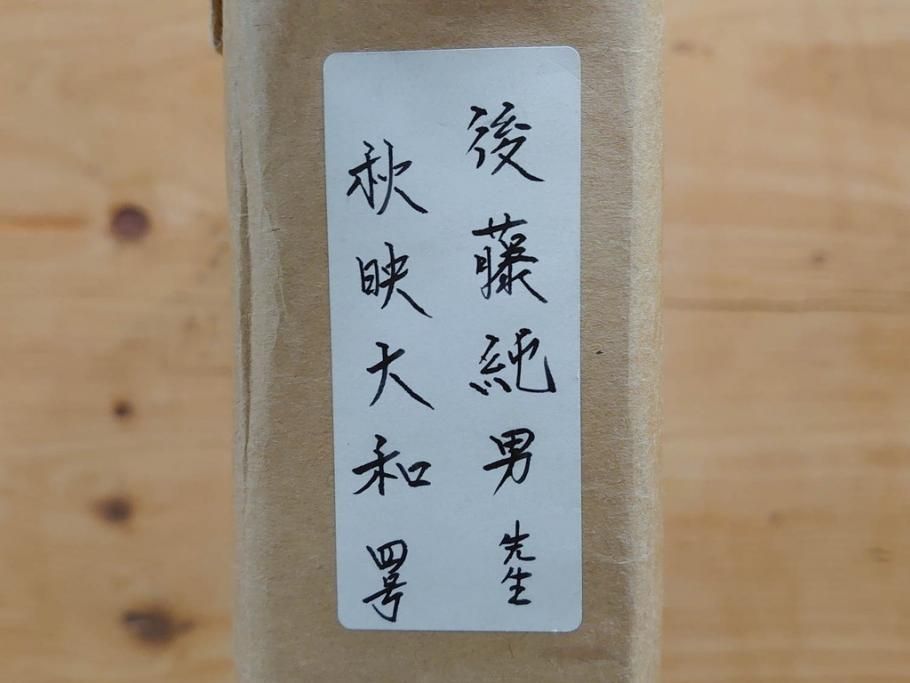 後藤純男先生
秋映大和四号